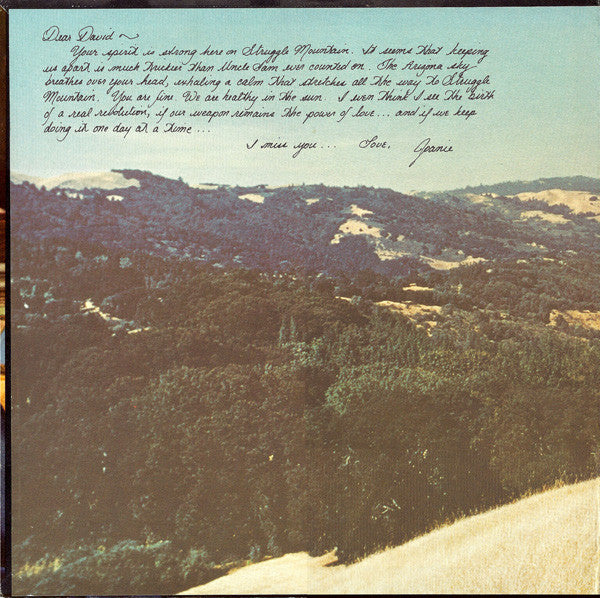 Dear David ~
Your spirit is strong here on Struggle Mountain. It seems that keeping
us apart is much trickier than Uncle Sam ever counted on. The Arizona sky
breathes over your head, exhaling a calm that stretches all the way to Struggle
Mountain. You are fine. We are healthy in the sun. I even think I see the birth
of a real revolution, if our weapon remains the power of love... and if we keep
doing it one day at a time...
I miss you... Love, Joanie